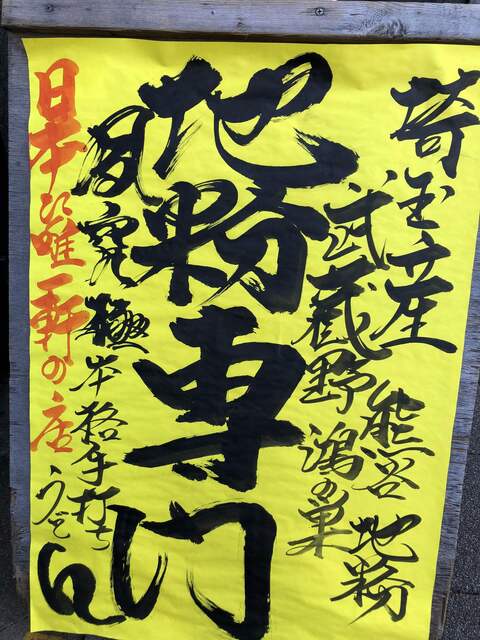 埼玉産 熊谷 地粉
武蔵野 鴻の巣
地粉専門
究極本格手打ちうどん
日本に唯一軒の店